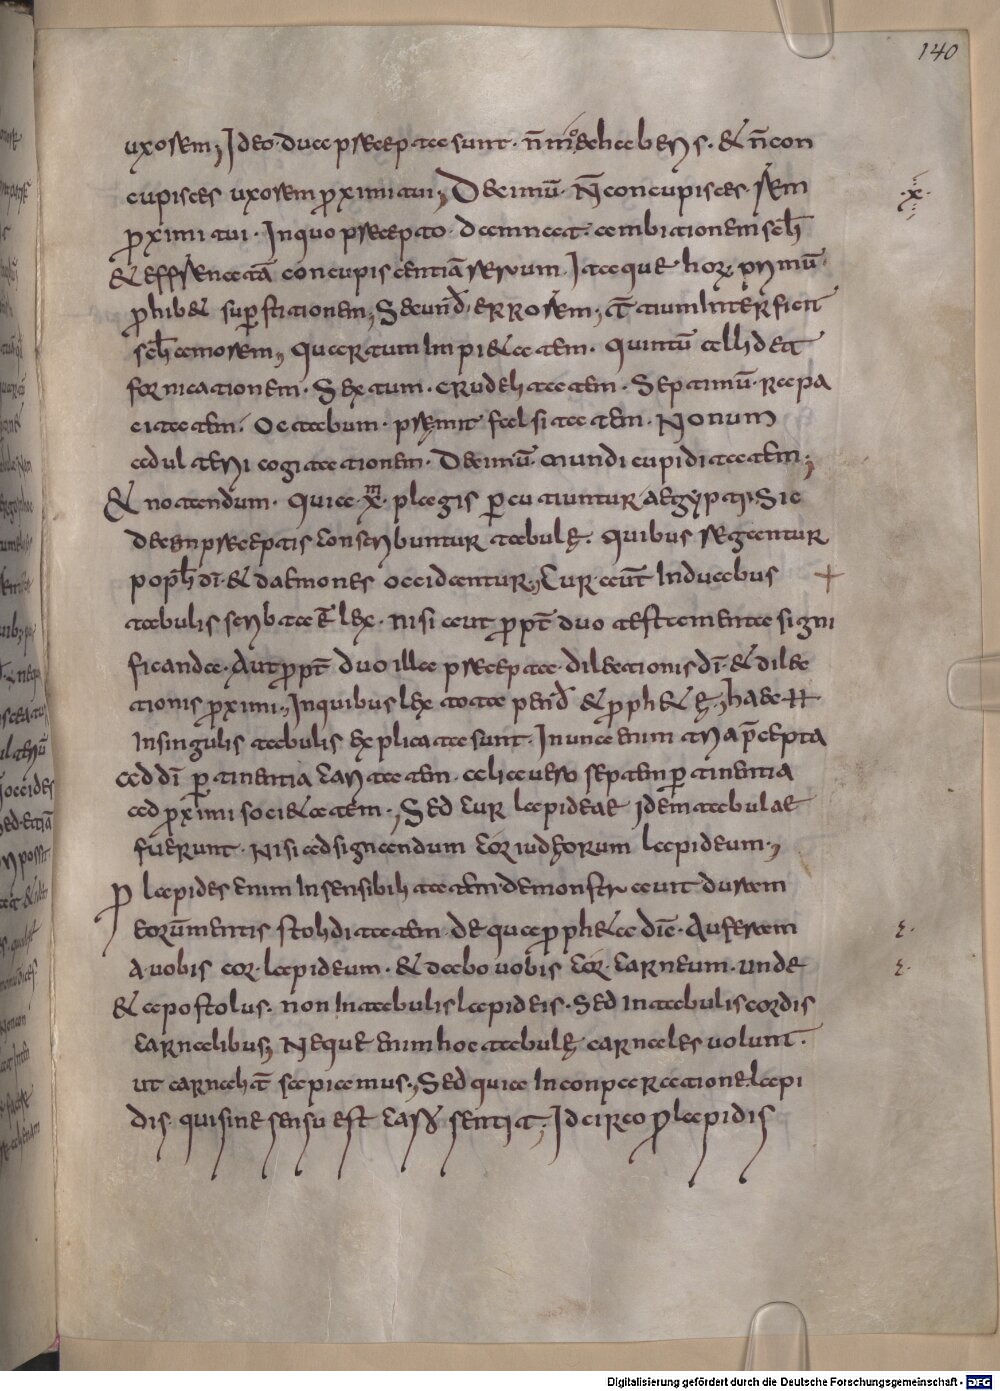 140
uxorem; Ideo duae praecepta sunt· n̄ mechaberis· & n̄ con
cupisces uxorem p̄ximi tui; Decimū· N̄ concupisces· rem
·x·
p̄ximi tui· In quo praecepto· damnat· ambitionem scl̄i
& effrenatā concupiscentiā rerum· Itaque horꝝ primū·
p̄hib& sup̄stitionem; Secund̄· errorem; t̄tium interficit
scl̄i amorem; Quartum impi&atem· Quintū allidit
fornicationem· Sextum· crudelitatem· Septimū· rapa
citatem· Octabum· praemit falsitatem· Nonum
adulteri cogitationem· Decimū· mundi cupiditatem;
& notandum· quia x̄· plagis p̄cutiuntur aegyptii· Sic
decem praeceptis conscribuntur tabulę· Quibus regantur
popl̄i dī· & daemones occidantur; Cur aut̄ In duabus
tabulis scribta ē lex· nisi aut p̄pt̄ duo testamenta signi
ficanda· Aut p̄pt̄ duo illa praecepta· dilectionis dī· & dilec
tionis p̄ximi; In quibus lex tota pend̄ & p̄ph&ę; haec
In singulis tabulis explicata sunt· In una enim tria p̄cepta
ad dī p̄tinentia caritatem· alia uero septem p̄tinentia
ad p̄ximi soci&atem; Sed cur lapideae idem tabulae
fuerunt· Nisi ad signandum cor iudęorum lapideum;
P̄ lapides enim Insensibilitatem demonstrauit duram
eorū mentis stoliditatem· de qua p̄ph&a dic̄· Auferam
a uobis cor· lapideum· & dabo uobis cor· carneum· unde
& apostolus· non In tabulis lapideis· Sed in tabulis cordis
carnalibus; Neque enim hoc tabulę carnales uolunt·
ut carnalit̄ sapiamus; Sed quia In conparatione lapi
dis· qui sine sensu est caro sentiat; Idcirco p̄ lapidis
Digitalisierung gefördert durch die Deutsche Forschungsgemeinschaft - DFG